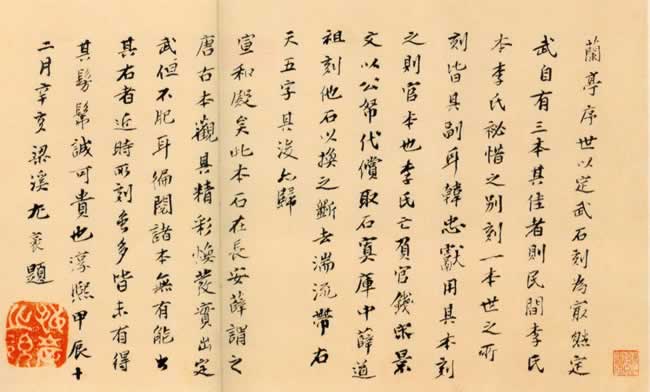 蘭亭序世以定武石刻為最然定
武自有三本其佳者則民間李氏
本李氏祕惜之別刻一本世之所
刻皆其副耳韓忠獻用其本刻
之則官本也李氏亡負官錢宋景
文以公帑代償取石寘庫中薛道
祖刻他石以換之斲去湍流帶右
天五字其後乃歸
宣和殿矣此本石在長安薛謂之
唐古本觀其精彩煥發實出定
武但不肥耳徧閱諸本無有能出
其右者近時所刻多皆未有得
其髣髴誠可貴也淳熙甲辰十
二月辛亥梁溪尤袤題